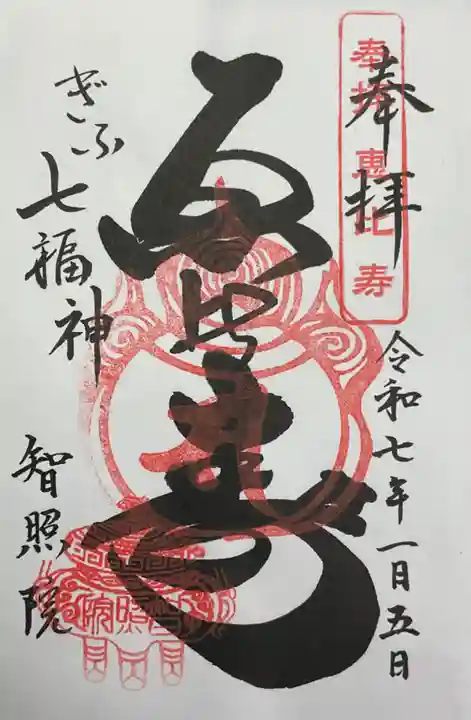 奉拝
奉拝 恵比寿
令和七年一月五日
恵比寿
ぎふ七福神
智照院
智照院